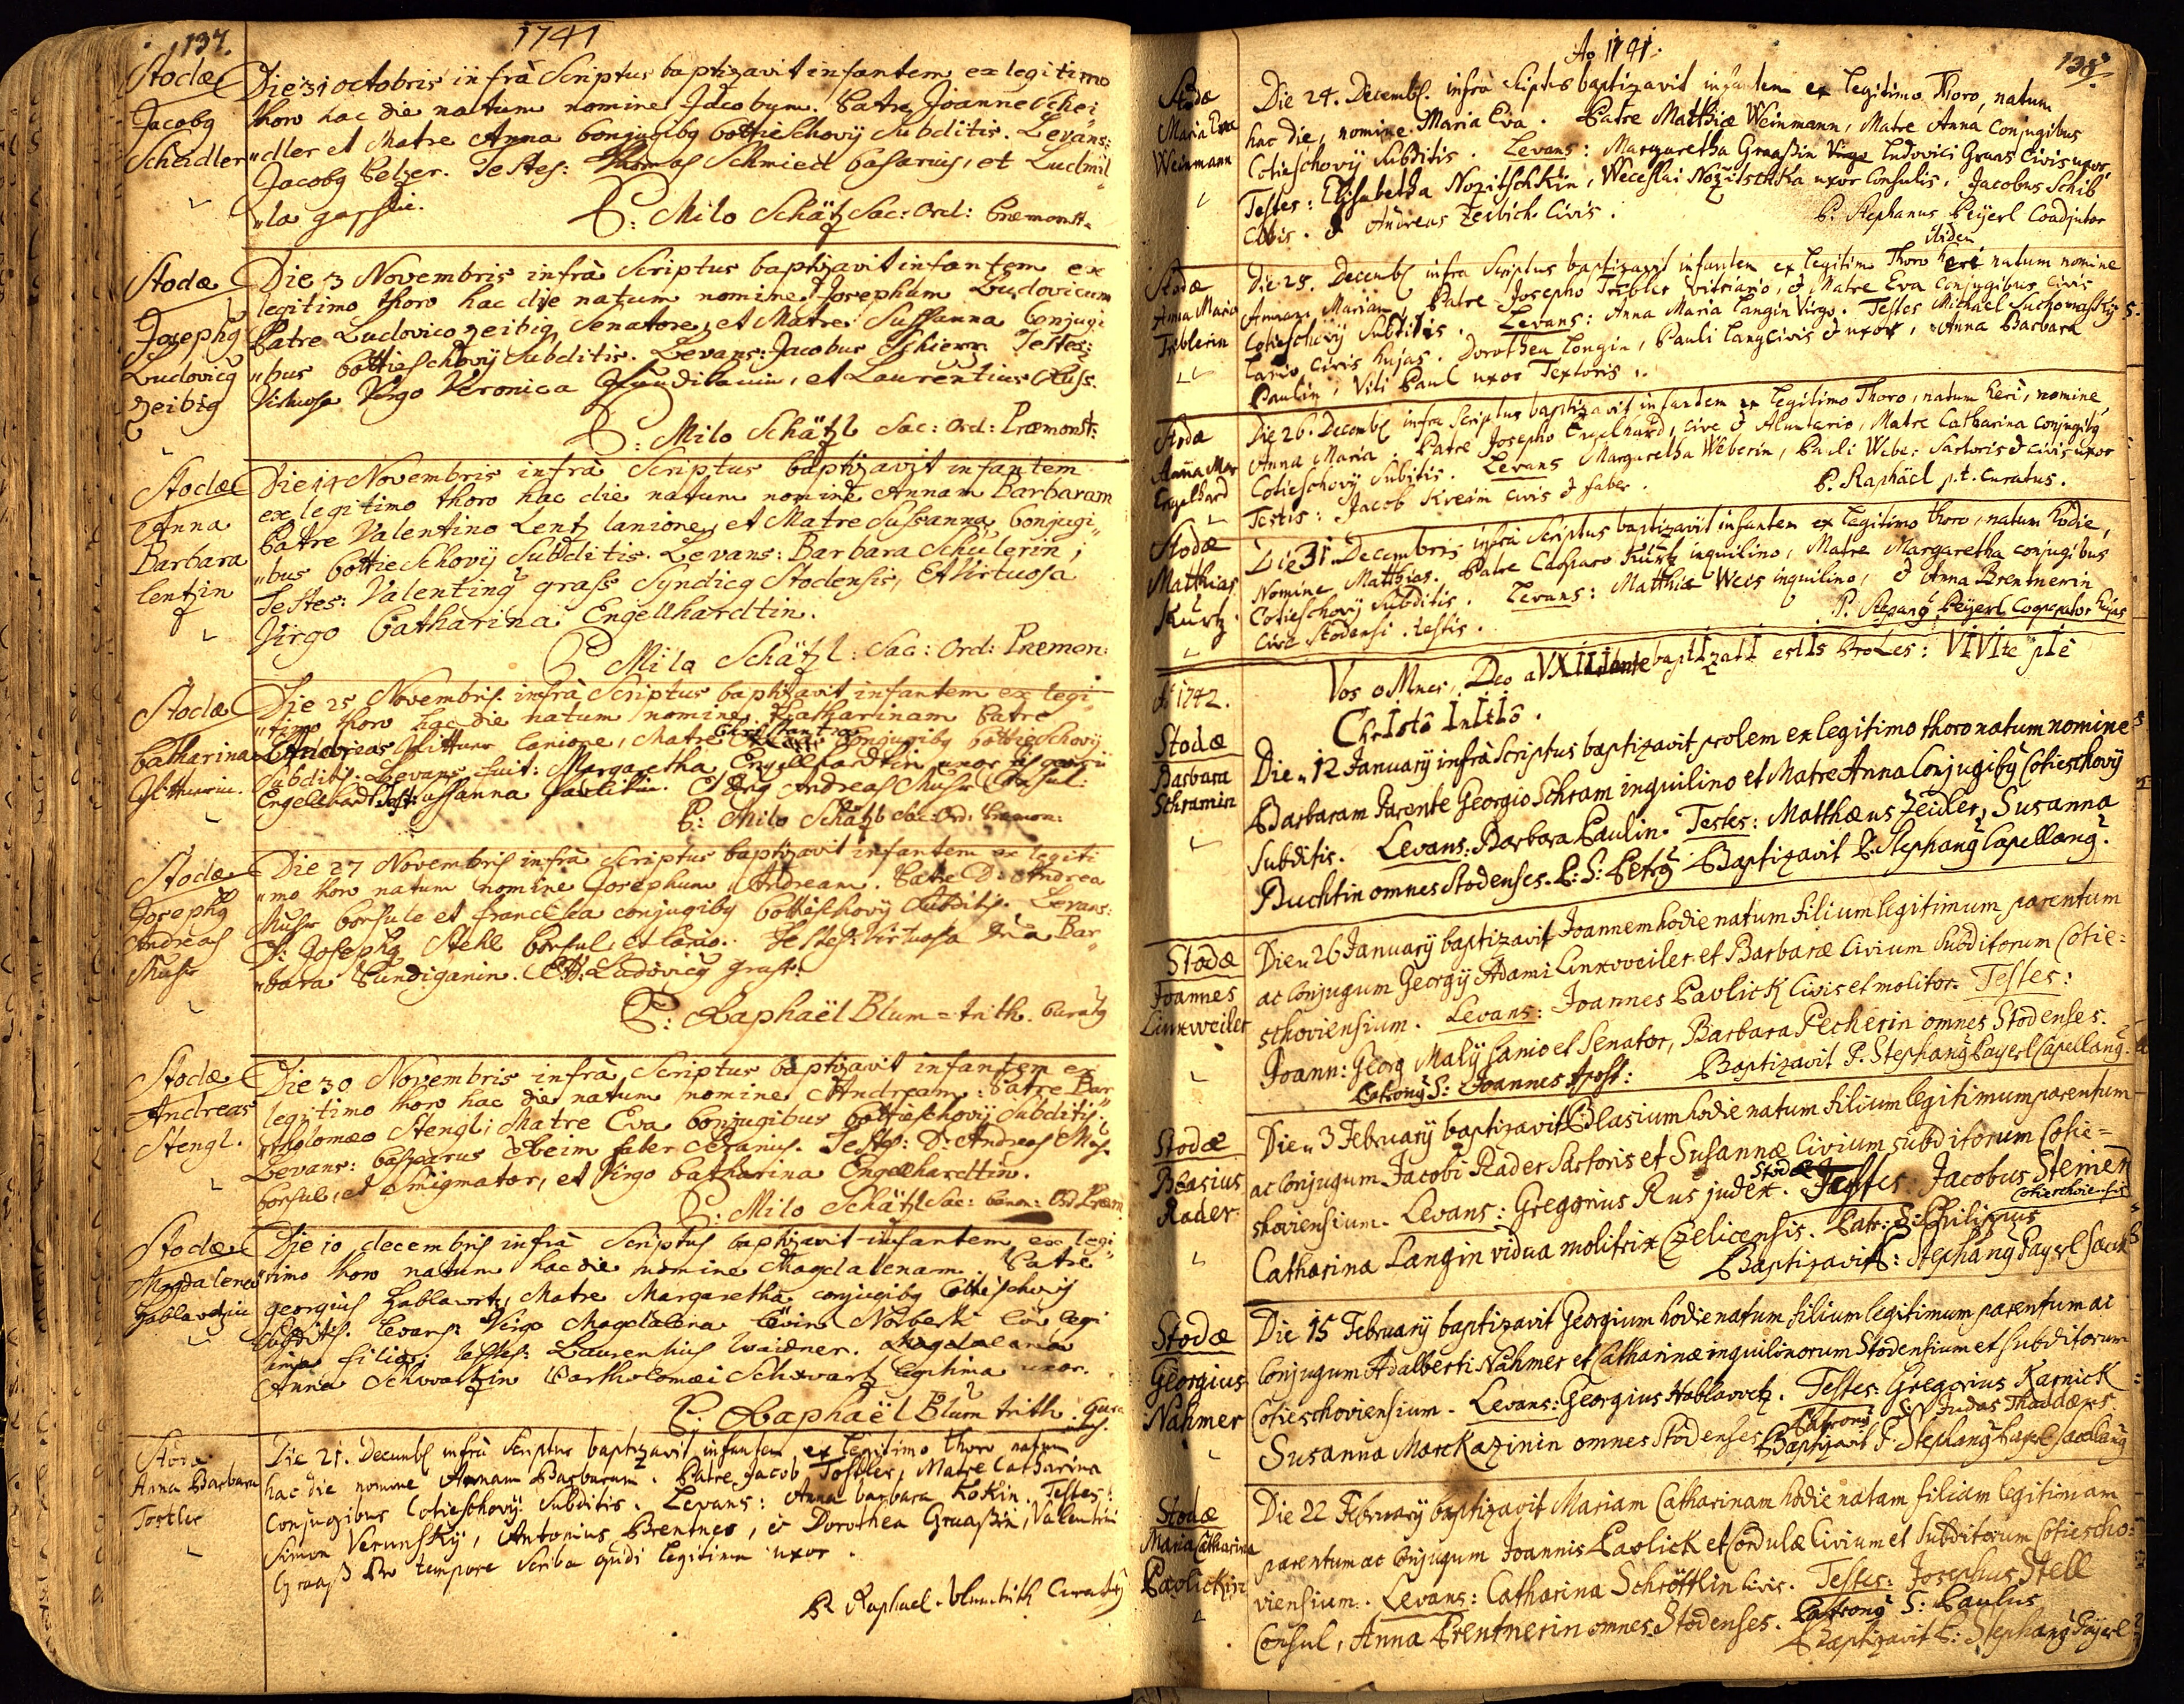 137.
1741
Stodæ
Jacobg
Schedler
Die 31 octobris infrà Scriptus baptizavit infantem ex legitimo
thoro hac die natum nomine Jacobum. Patre Joanne Sche„
„dler et Matre Anna Conjugibg Cottieschovij Subditis. Levans:
Jacobg Pelzer. Testes: Thomas Schmied Casarius, et Ludmil„
„la
P: Milo Schätzl Sac: Ord: Præmonst.
Stodæ
Josephg
Ludovicg
Zeibig
Die 3 Novembris infrà Scriptus baptizavit infantem ex
legitimo thoro hac die natum nomine Josephum Ludovicum
Patre Ludovico Zeibig, Senatore, et Matre Sussanna Conjugi
„bus Cottieschovij Subditis. Levans: Jacobus Schierr Testes:
Virtuosa Virgo Veronica et Laurentius Russ.
P: Milo Schätzl Sac: Ord: Præmonst:
Stodæ
Anna
Barbara
lentzin
Die 14 Novembris infrà Scriptus baptizavit infantem
ex legitimo thoro hac die natum nomine Annam Barbaram
Patre Valentino Lentz lanione, et Matre Sussanna, Conjugi„
„bus Cottieschovij Subditis. Levans: Barbara Schulerin;
Testes: Valenting grass Syndicg Stodensis, Et Virtuosa
Virgo Catharina Engellhardtin.
P Milo Schätzl: Sac: Ord: Præmon:
Stodæ
Catharina
Die 25 Novembris infrà Scriptus baptizavit infantem ex legi„
„timo thoro hac die natum nomine Catharinam Patre
Andreas lanione, Matre Conjugibg Cottieschovij
Subditis. Levans fuit: Margaretha Engellhardtin uxor
Engelhardt Test: ussanna Andreas Musr Consul:
P: Milo Schätzl Sac: Ord: Præmon:
Stodæ
Josephg
Andreas
Musr
Die 27 Novembris infrà Scriptus baptizavit infantem ex legiti
„mo thoro natum nomine Josephum Andream. Patre D: Andrea
Musr Consule et francisca conjugibg Cottischovij Subditis. Levans:
D: Josephg Stehl Consul et lanio. Testes: Virtuosa Bar„
„bara Pundiganin. Et D: Ludovicg grass.
P: Raphaël Blum=trith. Curatg
Stodæ
Andreas
Stengl.
Die 30 Novembris infrà Scriptus baptizavit infantem ex
legitimo thoro hac die natum nomine Andream: Patre Bar„
„tholomæo Stengl; Matre Eva Conjugibus Cottieschovij Subditis.
Levans: Casparus faber Testes: D: Andreas Mus.
Consule, et Smigmator, et Virgo Catharina Engelhardtin.
P: Milo Schätzl Sac: Canon: Ord Præm.
Stodæ
Magdalena
Hablavetzin
Die 10 decembris infrà Scriptus baptizavit infantem ex legi„
„timo thoro natum hac die nomine Magdalenam. Patre
georgius Hablawetz, Matre Margaretha conjugibg Cottischovij
Subditis. Levans: Virgo Magdalena Lövin Norberti löv legi
tima filia; testes: Laurentius Waidner. Magdalena
Anna Schwartzin Bartholomæi Schwartz legitima uxor.
P: Raphaël Blum trith. Cura
tus.
Stodæ
Anna Barbara
Tostler
Die 21. Decembr infrà Scriptus baptizavit infantem ex legitimo thoro natum
hac die nomine Annam Barbaram. Patre Jacob Tostler, Matre Catharina
Conjugibus Cotieschovij Subditis. Levans: Anna barbara Kokin. Testes:
Simon Verunsky, Antonius Brentner, & Dorothea Graaßin, Valentini
Graaß Pro tempore Scriba legitima uxor.
P. Raphael. Blumtrith Curatg
Ao 1741.
138.
Stodæ
Maria Eva
Weinmann
Die 24. Decembr. infrà Sciptus baptizavit infantem ex Legitimo Thoro, natum
hac die, nomine Maria Eva. Patre Matthia Weinmann, Matre Anna Conjugibus
Cotieschovij Subditis. Levans: Margaretha Graaßin Virgo ludovici Graas Civis uxor,
Testes: Elisabetha Nozitschkin, Weceslai Nozitschka uxor Consulis, Jacobus Schib
Civis. & Andreas Zerlich Civis.
P. Stephanus Peÿerl Coadjutor
ibidem
Stodæ
Anna Maria
Triblerin
Die 25. Decembr infra Scriptus baptizavit infantem ex Legitim Thoro heri natum nomine
Annam Mariam, Patre Josepho Tribler vitriario, & Matre Eva Conjugibus, Civis
Cotieschovij Subditis. Levans: Anna Maria Langin Virgo. Testes Michael Suchomasti
Lanio Civis hujas. Dorothea Langin, Pauli Lang civis & uxor, Anna Barbara
Paulin, Viti Paul uxor Textoris.
Stodæ
Anna Mar
Engelhard
Die 26. Decembr infra Scriptus baptizavit infantem ex Legitimo Thoro, natum heri, nomine
Anna Maria. Patre Josepho Engelhard, cive & Aluntario, Matre Catharina conjugibg
Cotieschovij Subitis. Levans Margaretha Weberin, Pauli Weber Sartoris & civis uxor
Testis: Jacob Kreim civis & faber.
P. Raphäel p.t. Curatus.
Stodæ
Matthias
Kurtz.
Die 31. Decembris infrà Scriptus baptizavit infantem ex Legitimo thoro, natum hodie,
Nomine Matthias. Patre Casparo Kurtz inquilino, Matre Margaretha conjugibus
Cotieschovij Subditis. Levans: Matthia Weis inquilino, & Anna Brentnerin
Civæ Stodensi. testis.
P. Stepang Peÿerl Cooperator hujas
Vos oMnes, Deo aVXILIante baptIzatI estIs proLes: VIVIte pIe
ChrIsto InItIo.
Ao 1742.
Stodæ
Barbara
Schramin
Die „ 12 January infrà Scriptus baptizavit prolem ex legitimo thoro natum nomine
Barbaram Parente Georgio Schram inquilino et Matre Anna Conjugibg Cotieschovij
subditis. Levans: Barbara Paulin. Testes: Matthæus Zeidler, Susanna
Buchtin omnes Stodenses. P: S: Petrg Baptizavit P. Stephang Capellang.
Stodæ
Joannes
Linxweiler
Die „ 26 January baptizavit Joannem hodie natum filium legitimum parentum
ac Conjugum Georgij Adami Linxweiler et Barbaræ Civium subditorum Cotie=
schoviensium. Levans: Joannes Pavlick Civis et molitor. Testes:
Joann: Georg Malÿ Lanio et Senator, Barbara Pecherin omnes Stodenses.
Patrong S: Joannes Apost: Baptizavit P. Stephang Payerl Capellang.
Stodæ
Blasius
Rader
Die „ 3 February baptizavit Blasium hodie natum filium legitimum parentum
ac Conjugum Jacobi Rader Sartoris et Susannæ Civium subditorum Cotie=
shoviensium. Levans: Gregorius Rus judex. Stodæ Testes: Jacobus Steiner
Cotieschoviensis
Catharina Langin vidua molitrix Czelicensis. Patr: S: Philippus
Baptizavit P: Stephang Payerl Sacerd
Stodæ
Georgius
Nahmer
Die 15 February baptizavit Georgium hodie natum filium legitimum parentum ac
Conjugum Adalberti Nahmer et Catharinæ inquilinorum Stodensium et subditorum
Cotieschoviensium. Levans: Georgius Hablavetz. Testes: Gregorius Karnick
Susanna Marckazinin omnes Stodenses Patrong S: Judas Thaddæus.
Baptizavit P. Stephang Capellang
Stodæ
Maria Catharina
Pavlickin
Die 22 February baptizavit Mariam Catharinam hodie natam filiam legitimam
parentum ac Conjugum Joannis Pavlick et Cordulæ Civium et subditorum Cotiescho=
viensium. Levans: Catharina Schröttlin Civis. Testes: Josephus Stell
Consul, Anna Prentnerin omnes Stodenses. Patrong S: Paulus
Baptizavit P: Stephang Päyerl